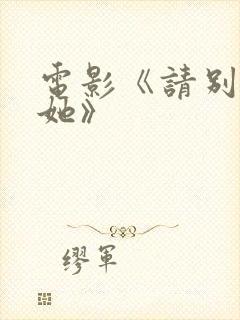 電影《請別
她》
繆軍